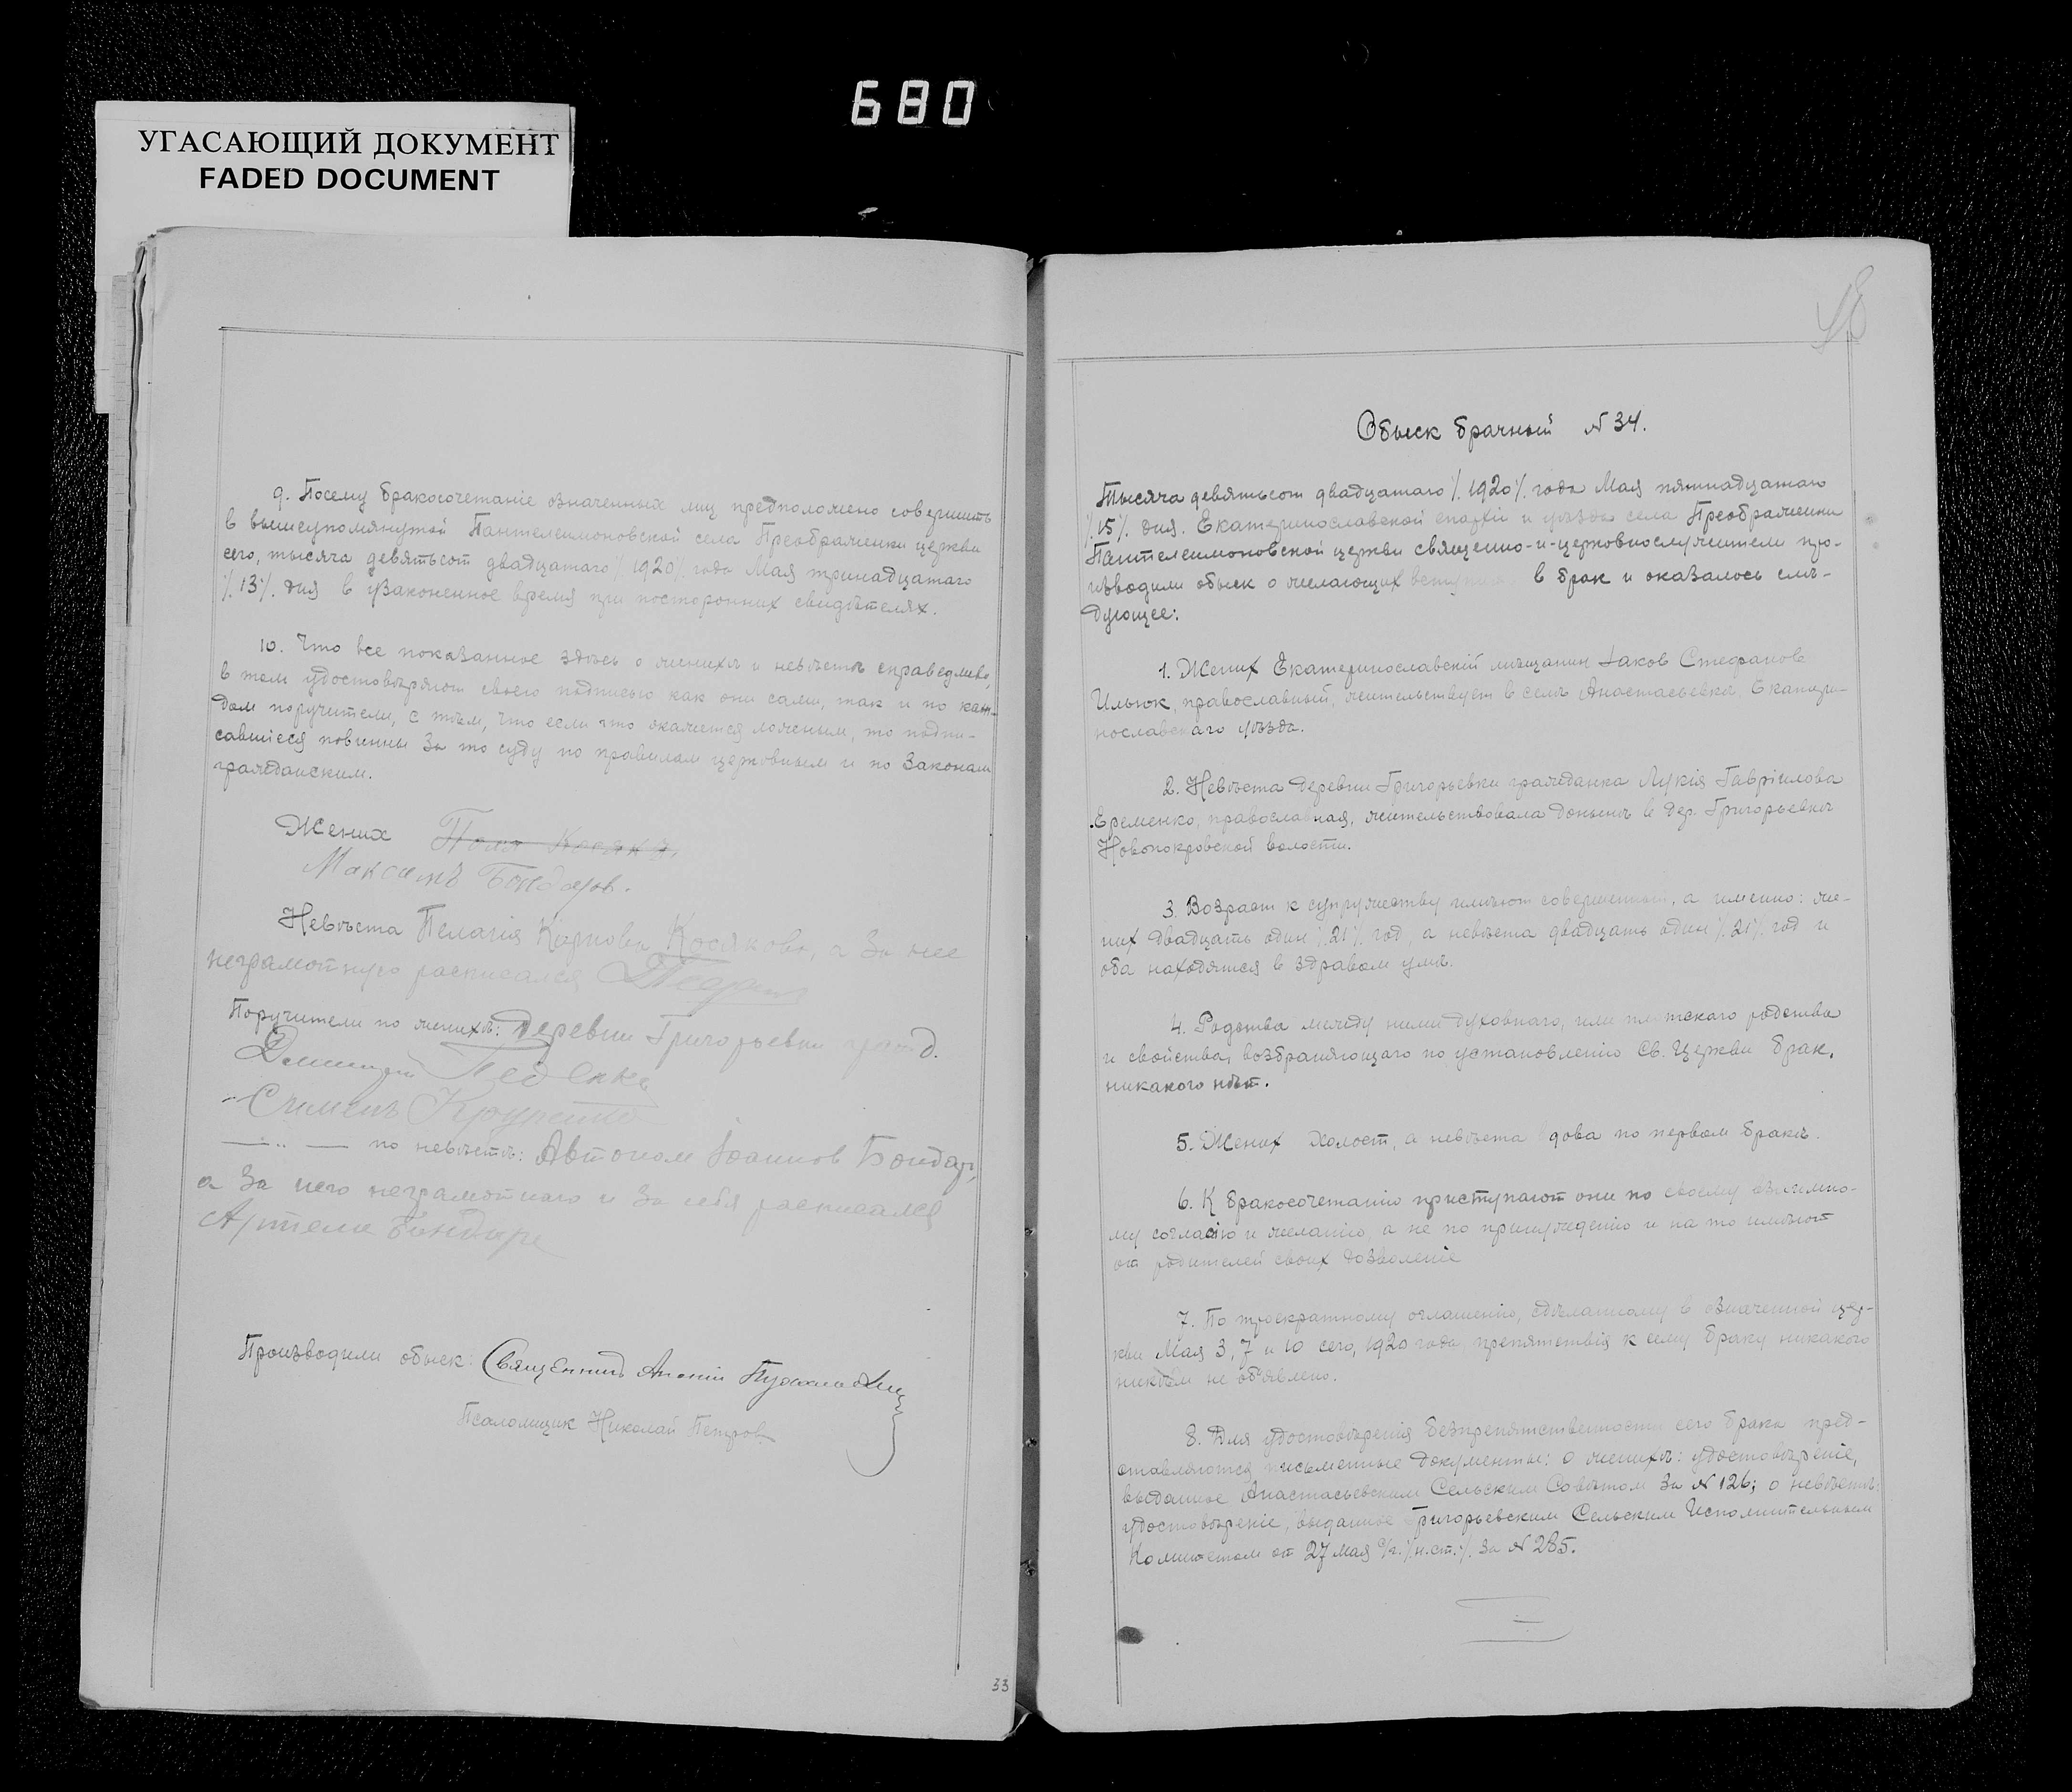 680
УГАСАЮЩИЙ ДОКУМЕНТ
FADED DOCUMENT
9. Посему бракосочетаніе означенных лиц предположено совершить
в вышеупомянутой Пантелеимоновской села Преображенки церкви
сего, тысяча девятьсот двадцатаго /.1920/. года Мая тринадцатаго
/.13/. дня в узаконенное время при посторонних свидѣтелях.
10. Что все показанное здѣсь о женихѣ и невѣстѣ справедливо,
в том удостовѣряют своею подписью как они сами, так и по каж-
дом поручители, с тѣм, что если что окажется ложным, то подпи-
савшіеся повинны за то суду по правилам церковным и по законам
гражданским.
Жених Поля Косяко
Максимъ Бондарь.
Невѣста Пелагія Карпова Косякова, а за нее
неграмотную расписался
Поручители по женихѣ: Деревни Григорьевки гражд.
Педенко
Симонъ
—„— по невѣстѣ: Автоном Іоаннов Бондарь,
а за него неграмотнаго и за себя расписался
Артем Бондарь
Производили обыск: Священникъ
Псаломщик Николай Петров
33
Обыск брачный № 34.
Тысяча девятьсот двадцатаго /.1920/. года Мая пятнадцатаго
/.15/. дня. Екатеринославской епархіи и уѣзда села Преображенки
Пантелеимоновской церкви священно-и-церковнослужители про-
изводили обыск о желающих вступить в брак и оказалось слѣ-
дующее:
1. Жених Екатеринославскій мѣщанин Іаков Стефанов
Ильюк, православный, жительствует в селѣ Анастасьевкѣ, Екатери-
нославскаго уѣзда.
2. Невѣста деревни Григорьевки гражданка Лукія Гавріилова
Еременко, православная, жительствовала донынѣ в дер. Григорьевкѣ
Новопокровской волости.
3. Возраст к супружеству имѣют совершенный, а именно: же-
них двадцать один /.21/. год, а невѣста двадцать один /.21/. год и
оба находятся в здравом умѣ.
4. Родства между ними духовнаго, или плотскаго родства
и свойства, возбраняющаго по установленію Св. Церкви брак,
никакого нѣт.
5. Жених холост, а невѣста вдова по первом бракѣ.
6. К бракосочетанію приступают они по своему взаимно-
му согласію и желанію, а не по принужденію и на то имѣют
от родителей своих дозволеніе
7. По троекратному оглашенію, сдѣланному в означенной цер-
кви Мая 3, 7 и 10 сего, 1920 года, препятствія к сему браку никакого
никѣм не объявлено.
8. Для удостовѣренія безпрепятственности сего брака пред-
ставляются письменные документы: о женихѣ: удостовѣреніе,
выданное Анастасьевским Сельским Совѣтом за № 126; о невѣстѣ:
удостовѣреніе, выданное Григорьевским Сельским Исполнительным
Комитетом от 27 мая с/г. /.н.ст./. за № 285.